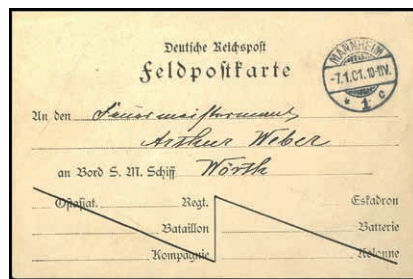 Deutsche Reichspost
Feldpostkarte
MANNHEIM
-7.1.01.10-11V.
* 1 c
An den Feuermeistersmaat
Arthur Weber
an Bord S. M. Schiff Wörth
Ostasiat. Regt. Eskadron
Bataillon Batterie
Kompagnie Kolonne